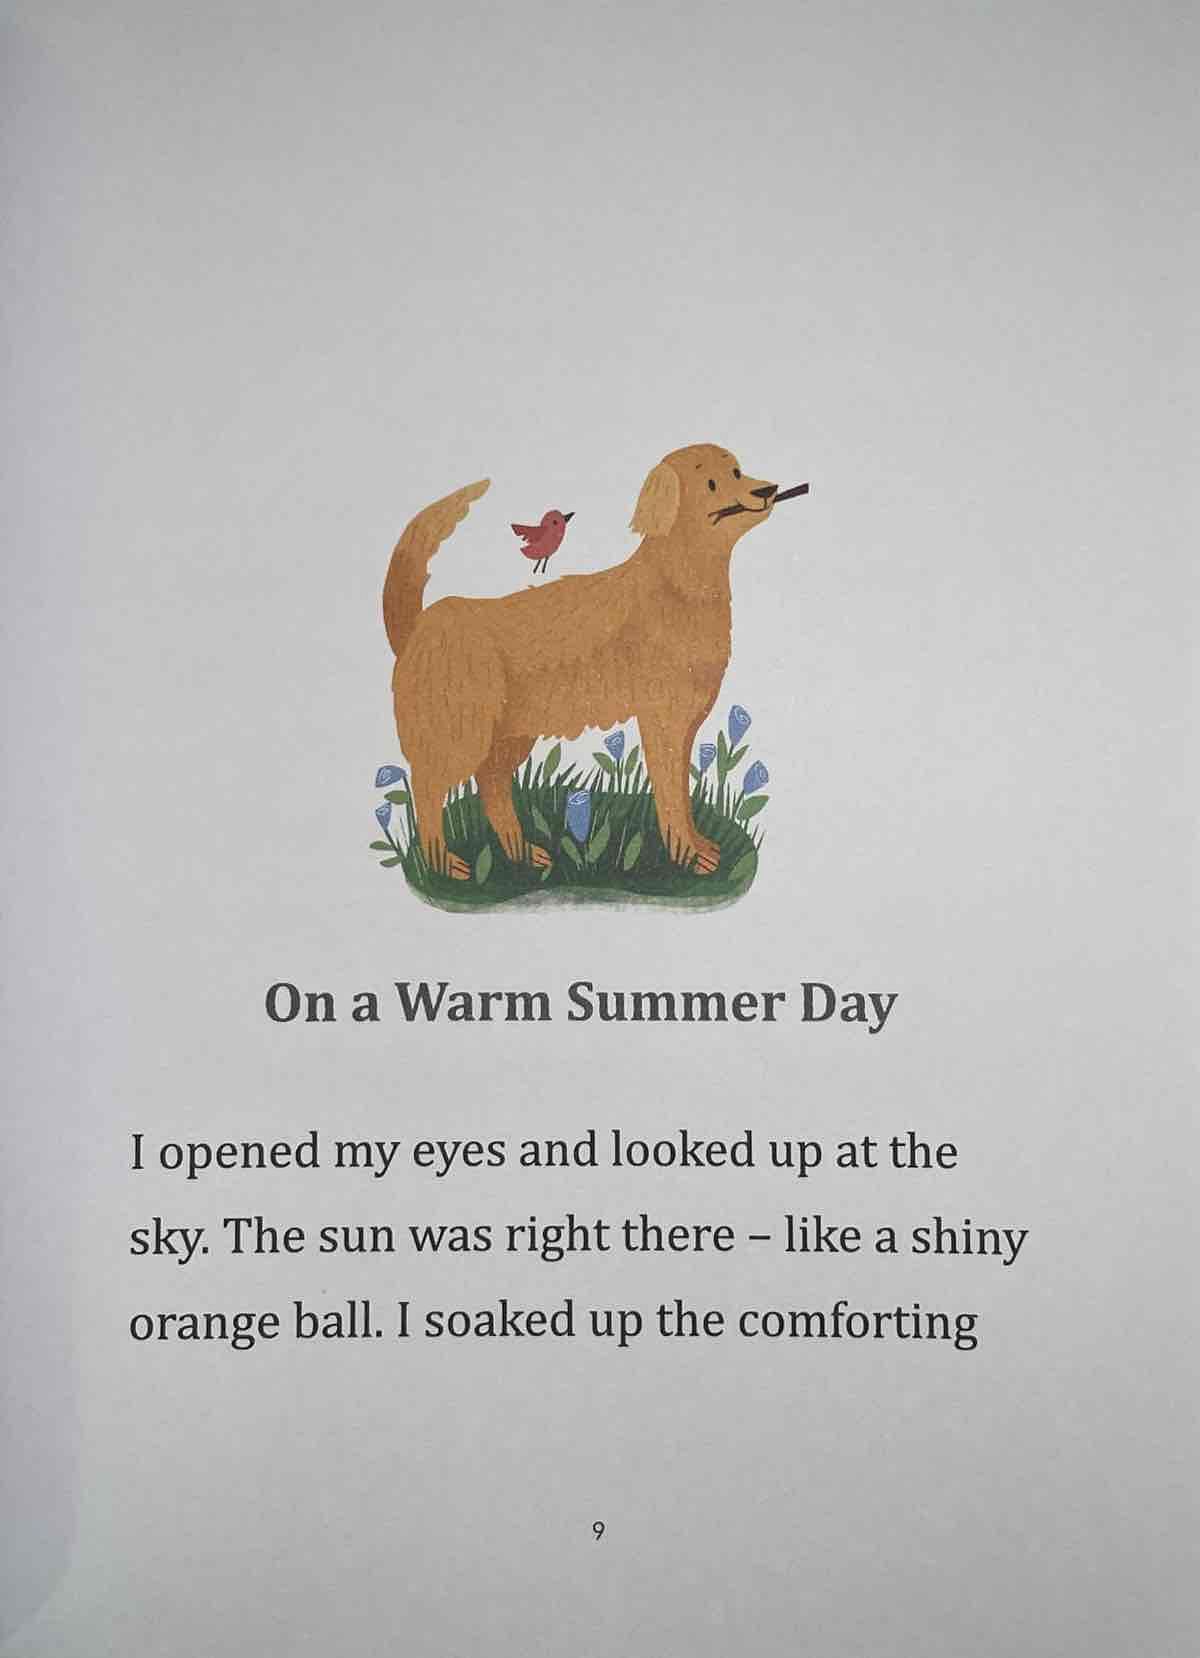 On a Warm Summer Day
I opened my eyes and looked up at the
sky. The sun was right there – like a shiny
orange ball. I soaked up the comforting
9